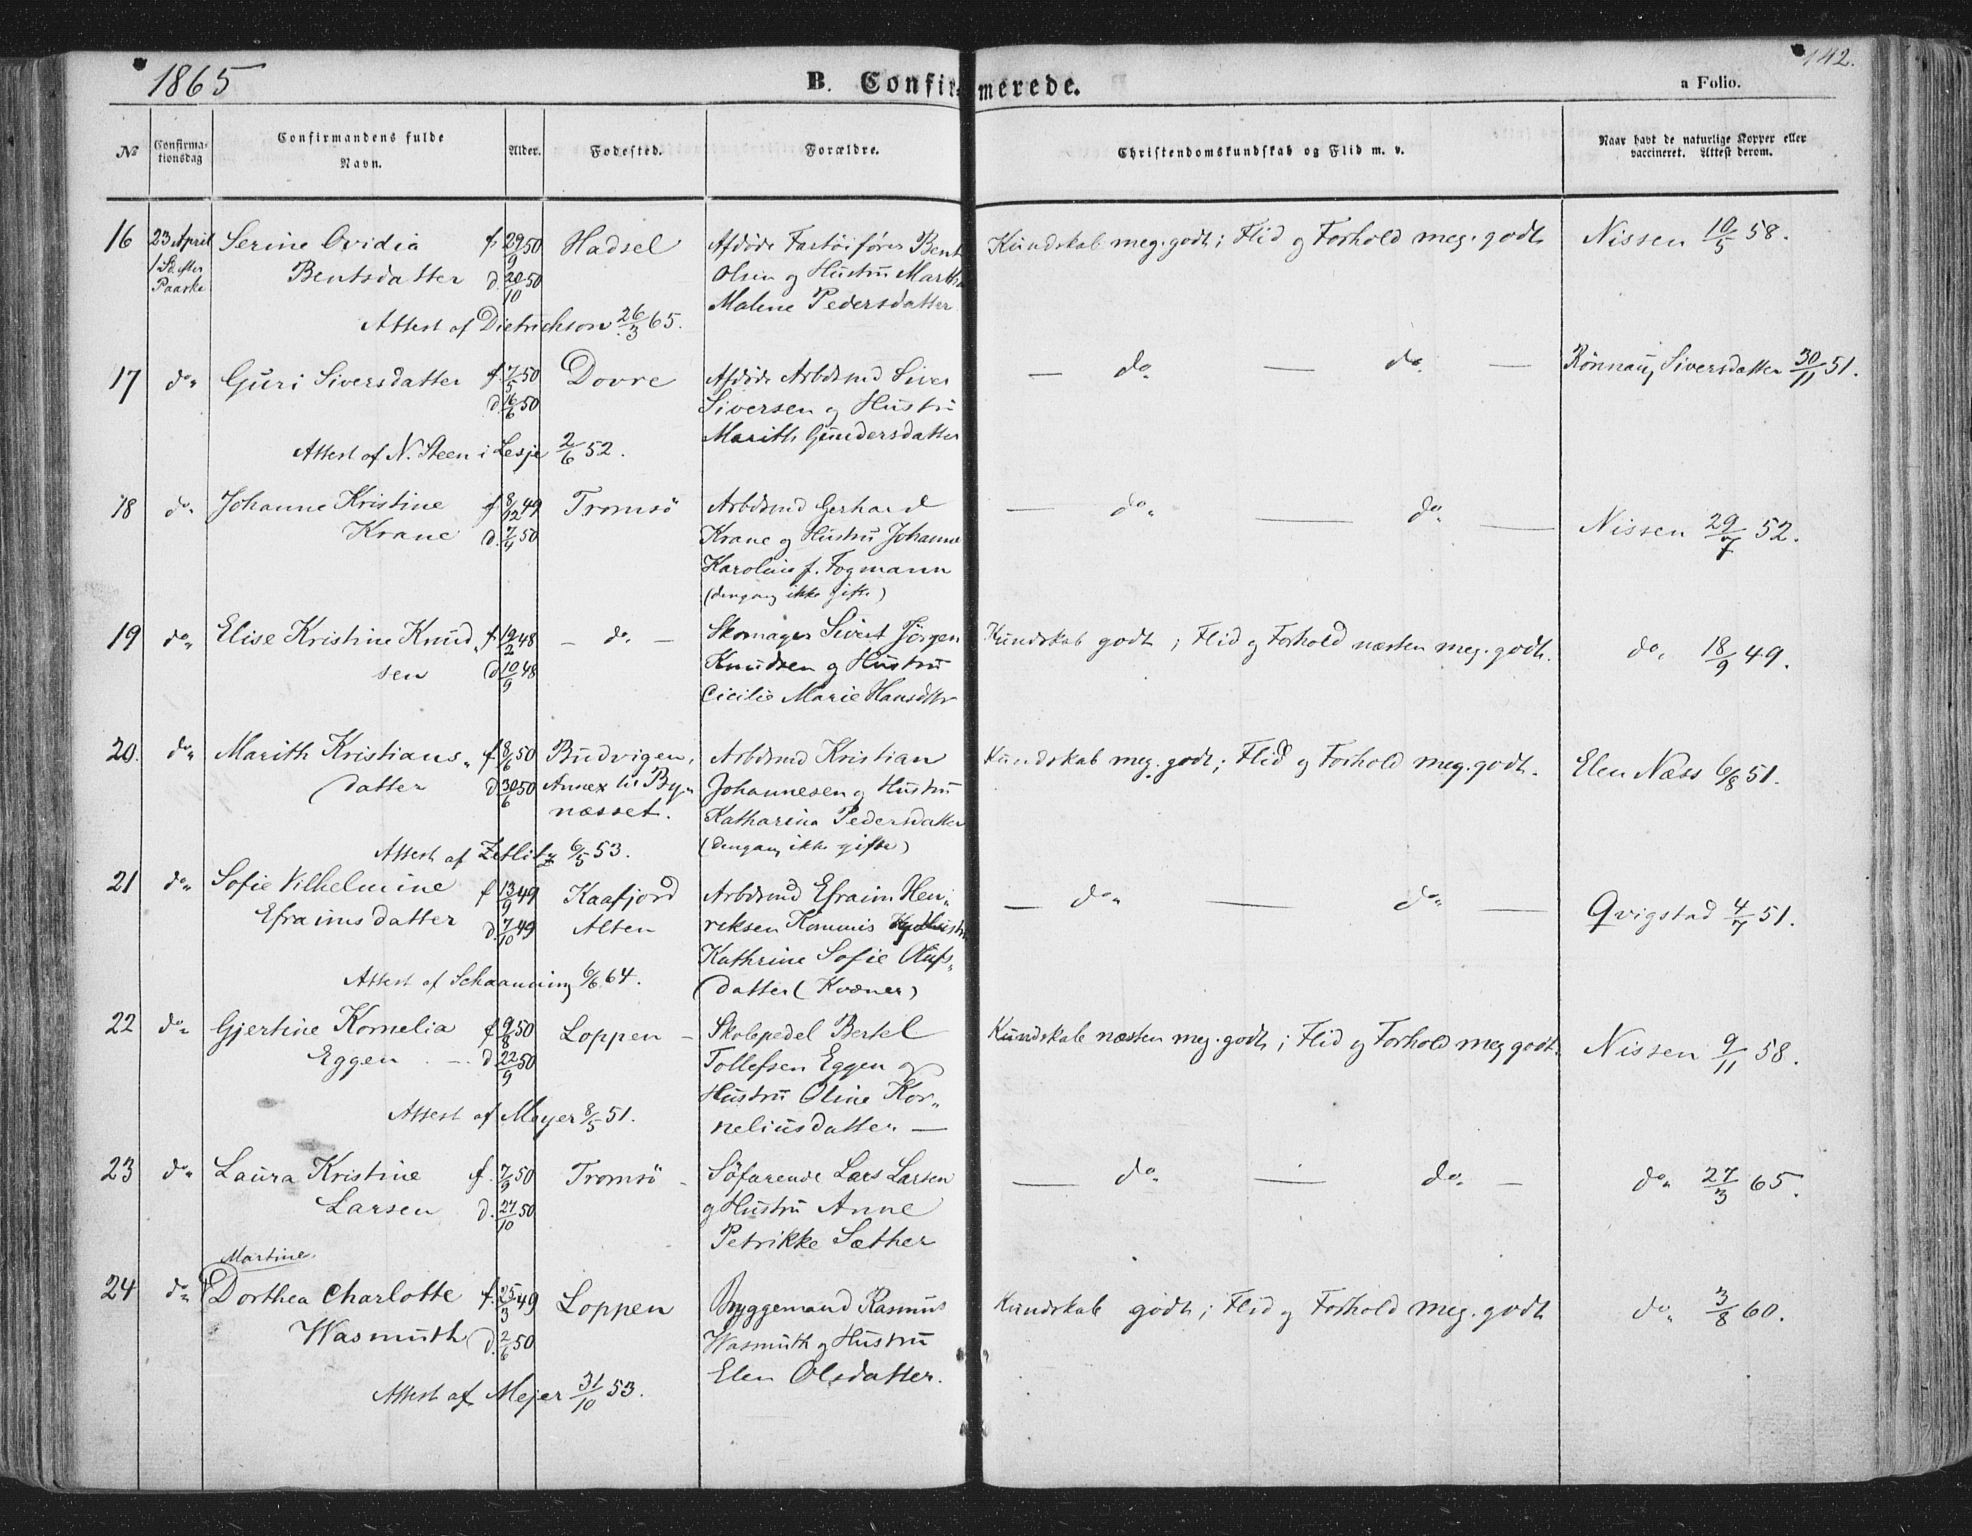 1865
B. Confirmerede.
142.
a Folio.
№
Confirmationsdag
Confirmandens fulde Navn.
Alder.
Fødested.
Forældre.
Christendomskundskab og Flid m. v.
Naar havt de naturlige Kopper eller vaccineret. Attest derom.
16 23 April Serine Ovidia f. 29/9 50 Hadsel Afdøde Bent Kundskab meg. godt; Flid og Forhold meg. godt Nissen 10/5 58.
1 Sd. efter Paaske Bentsdatter d. 20/10 50 Olsen og Hustru Martha
Malene Pedersdatter
Attest af Dietrichson 26/3 65.
17 do. Guri Siversdatter f. 7/5 50 Dovre Afdøde Arbdsmd Siver — do. — do. — Rönnaug Siversdatter 30/11 51.
d. 16/6 50 Siversen og Hustru
Marith Gundersdatter
Attest af N. Steen i Lesje 2/6 52.
18 do. Johanne Kristine f. 8/12 49 Tromsö Arbdsmd Gerhard — do. — do. — Nissen 29/7 52.
Krane d. 7/4 50 Krane og Hustru Johanne
Karoline f. Fogmann
(dengang ikke gifte)
19 do. Elise Kristine Knud f. 19/2 48 — do. — Skomager Sivert Jörgen Kundskab godt; Flid og Forhold næsten meg. godt. do. 18/9 49.
sen d. 10/9 48 Knudsen og Hustru
Cicilie Marie Hansdttr
20. do. Marith Kristians f. 8/6 50 Budvigen, Arbdsmd Kristian Kundskab meg. godt; Flid og Forhold meg. godt. Elen Næss 6/8 51.
datter d. 30/6 50 Annex til By- Johannesen og Hustru
næsset. Katharina Pedersdatter
(dengang ikke gifte)
Attest af Zetlitz 6/5 53.
21 do. Sofie Vilhelmine f. 13/9 49 Kaafjord Arbdsmd Efraim Hen- — do. — do. — Qvigstad 4/7 51.
Efraimsdatter d. 7/10 49 Alten reksen Kommis
Kathrine Sofie Olufs-
datter (Kvæner)
Attest af Schaanning 6/6 64.
22 do. Gjertine Kornelia f. 9/8 50 Loppen — Skolepedel Bertel Kundskab næsten meg. godt; Flid og Forhold meg godt. Nissen 9/11 58.
Eggen d. 22/9 50 Tollefsen Eggen og
Hustru Oline Kor-
neliusdatter —
Attest af Meyer 8/5 51.
23 do. Laura Kristine f. 7/9 50 Tromsö — Söfarende Lars Larsen — do. — do. — do. 27/3 65.
Larsen d. 27/10 50 og Hustru Anne
Petrikke Sæther
Martine
24 do. Dorthea Charlotte f. 25/3 49 Loppen Byggemand Rasmus Kundskab godt; Flid og Forhold meg. godt do. 3/8 60.
Wasmuth d. 2/6 50 Wasmuth og Hustru
Elen Olsdatter.
Attest af Mejer 31/10 53.